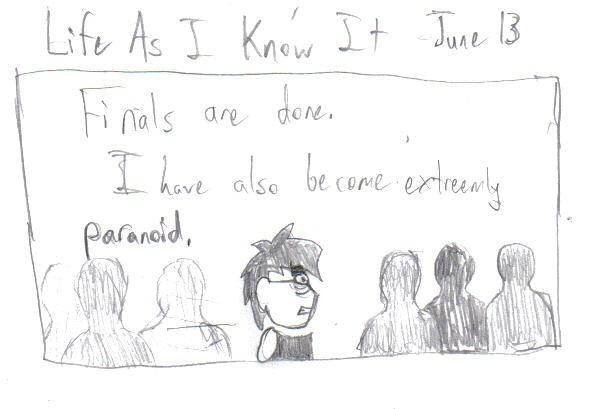 Life As I Know It June 13
Finals are done.
I have also become extreemly
paranoid.